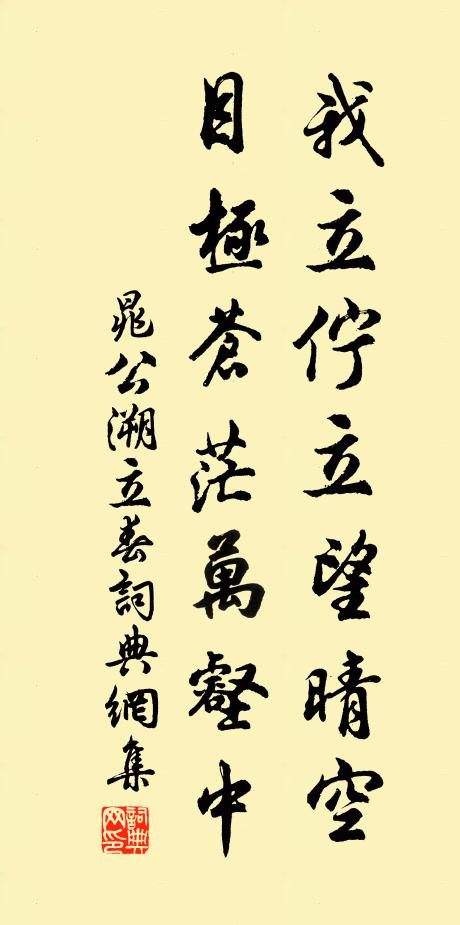 我立佇立望晴空
目極蒼茫萬壑中
晁公溯立春詞典網集
詞典網印